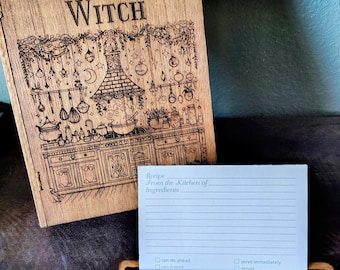 WITCH
Recipe
From the Kitchen of
Ingredients
can do ahead
serve immediately